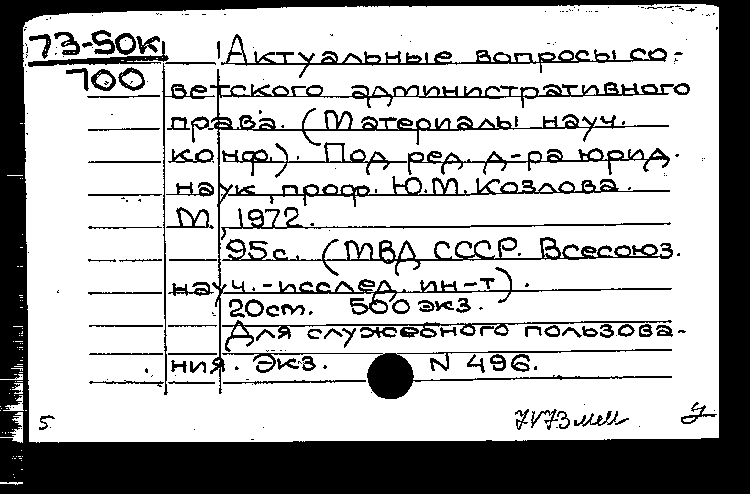 73-50к
700
Актуальные вопросы со-
ветского административного
права. (Материалы науч.
конф.). Под ред. д-ра юрид.
наук, проф. Ю.М.Козлова.
М., 1972.
95с. (МВД СССР. Всесоюз.
науч.-исслед. ин-т).
20см. 500 экз.
Для служебного пользова-
ния. Экз. N 496.
5